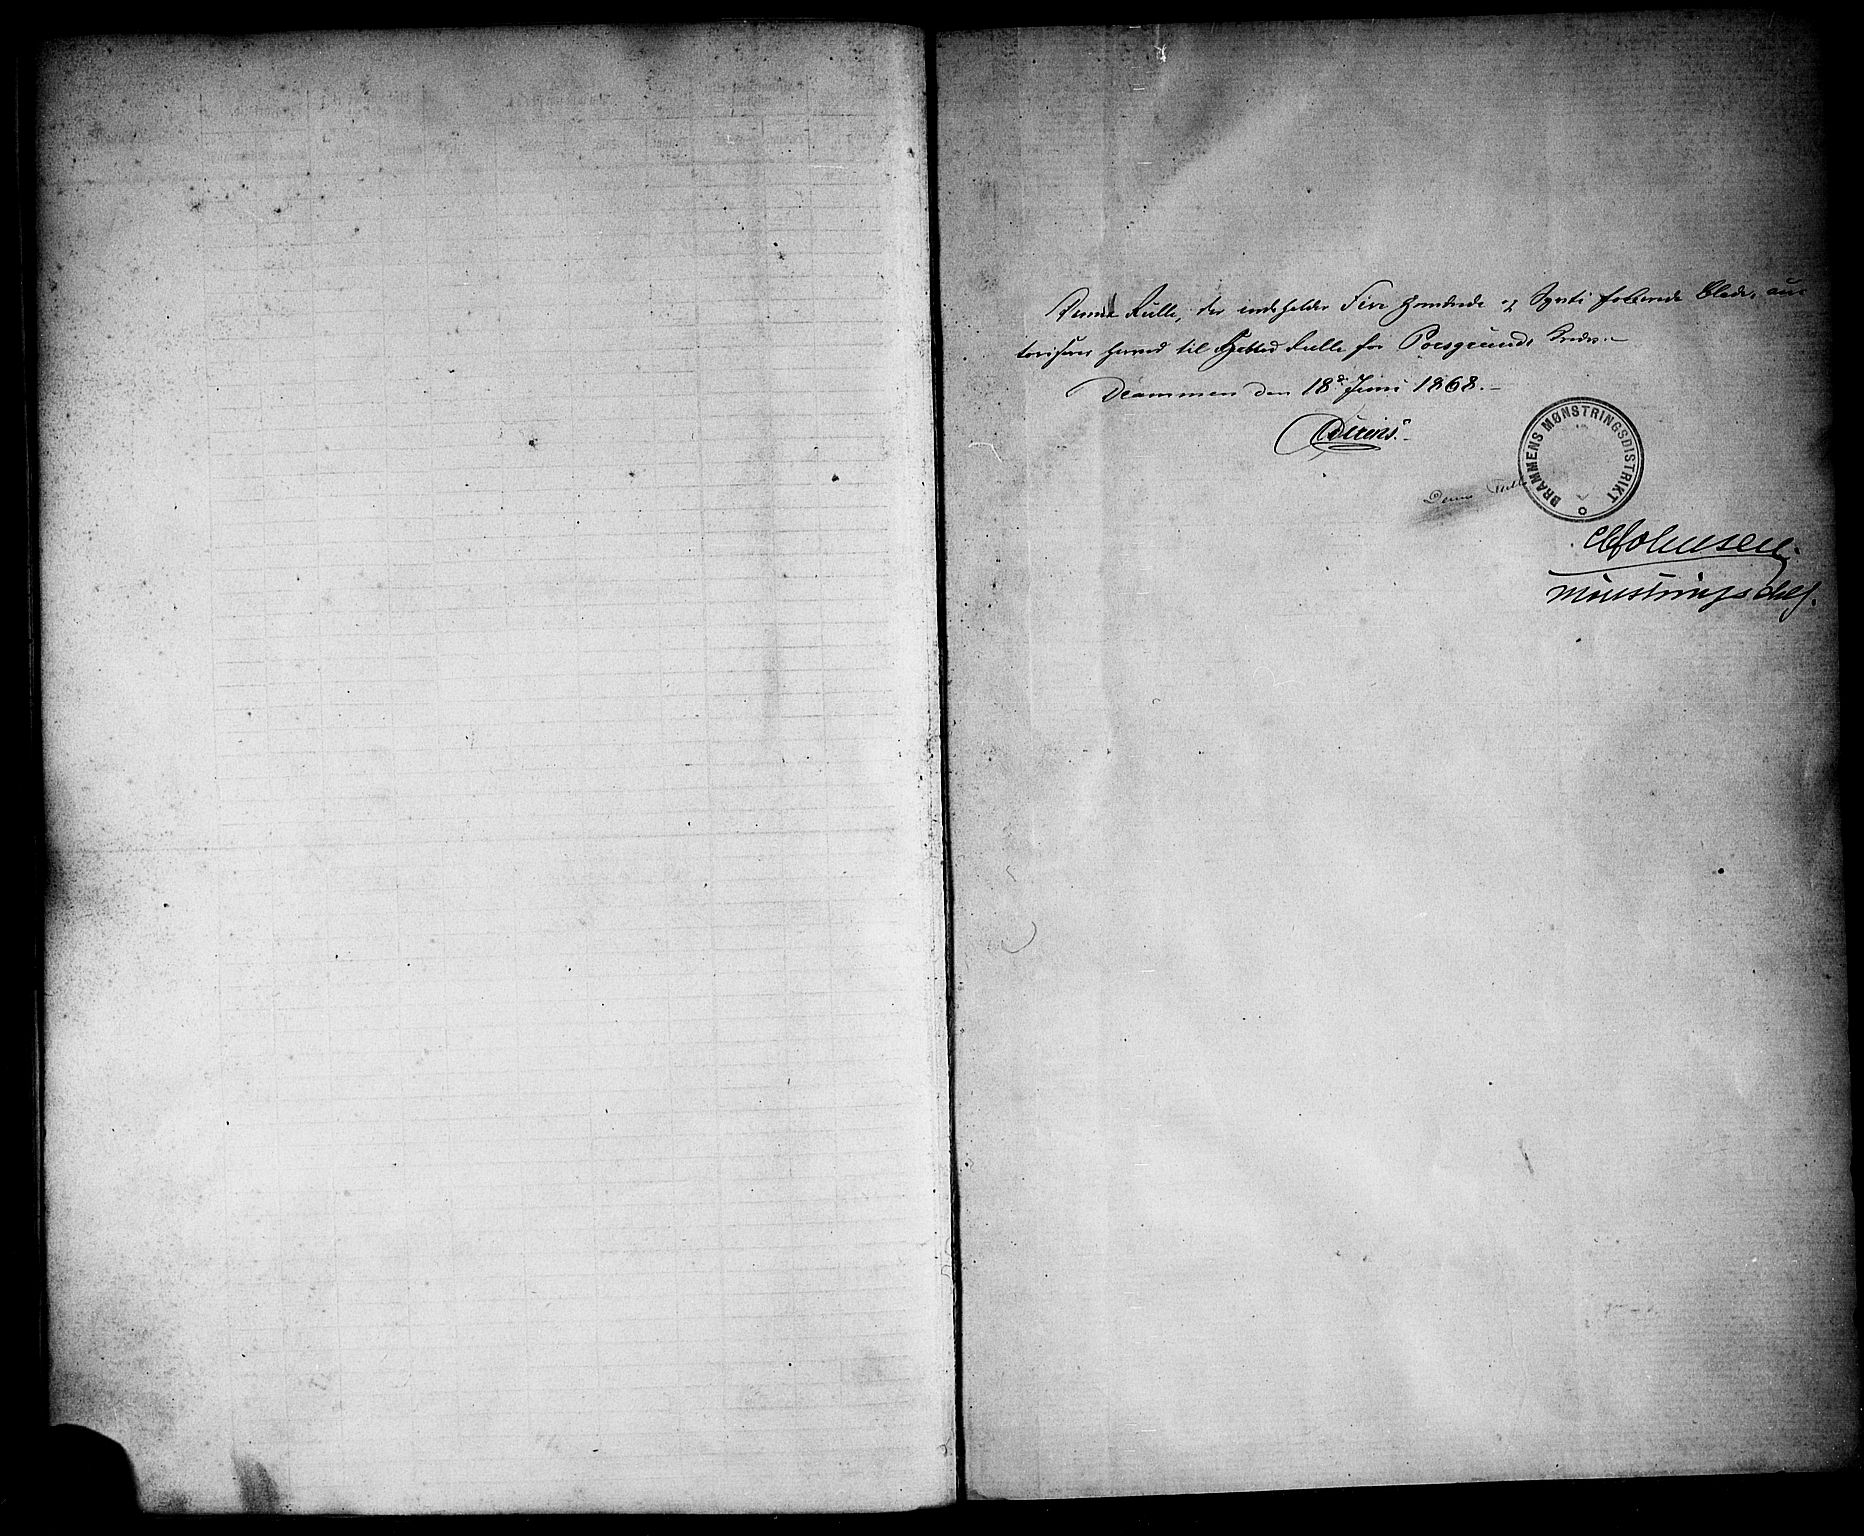 Denne Rulle, der indeholder Fire Hundrede og Syvti folierede Blade, au-
toriseres herved til Hovedrulle for Porsgrunds Kreds.-
Drammen den 18de Juni 1868.-
DRAMMENS MØNSTRINGSDISTRIKT
Denne Rulle
Johnsen.
Mønstringschef.